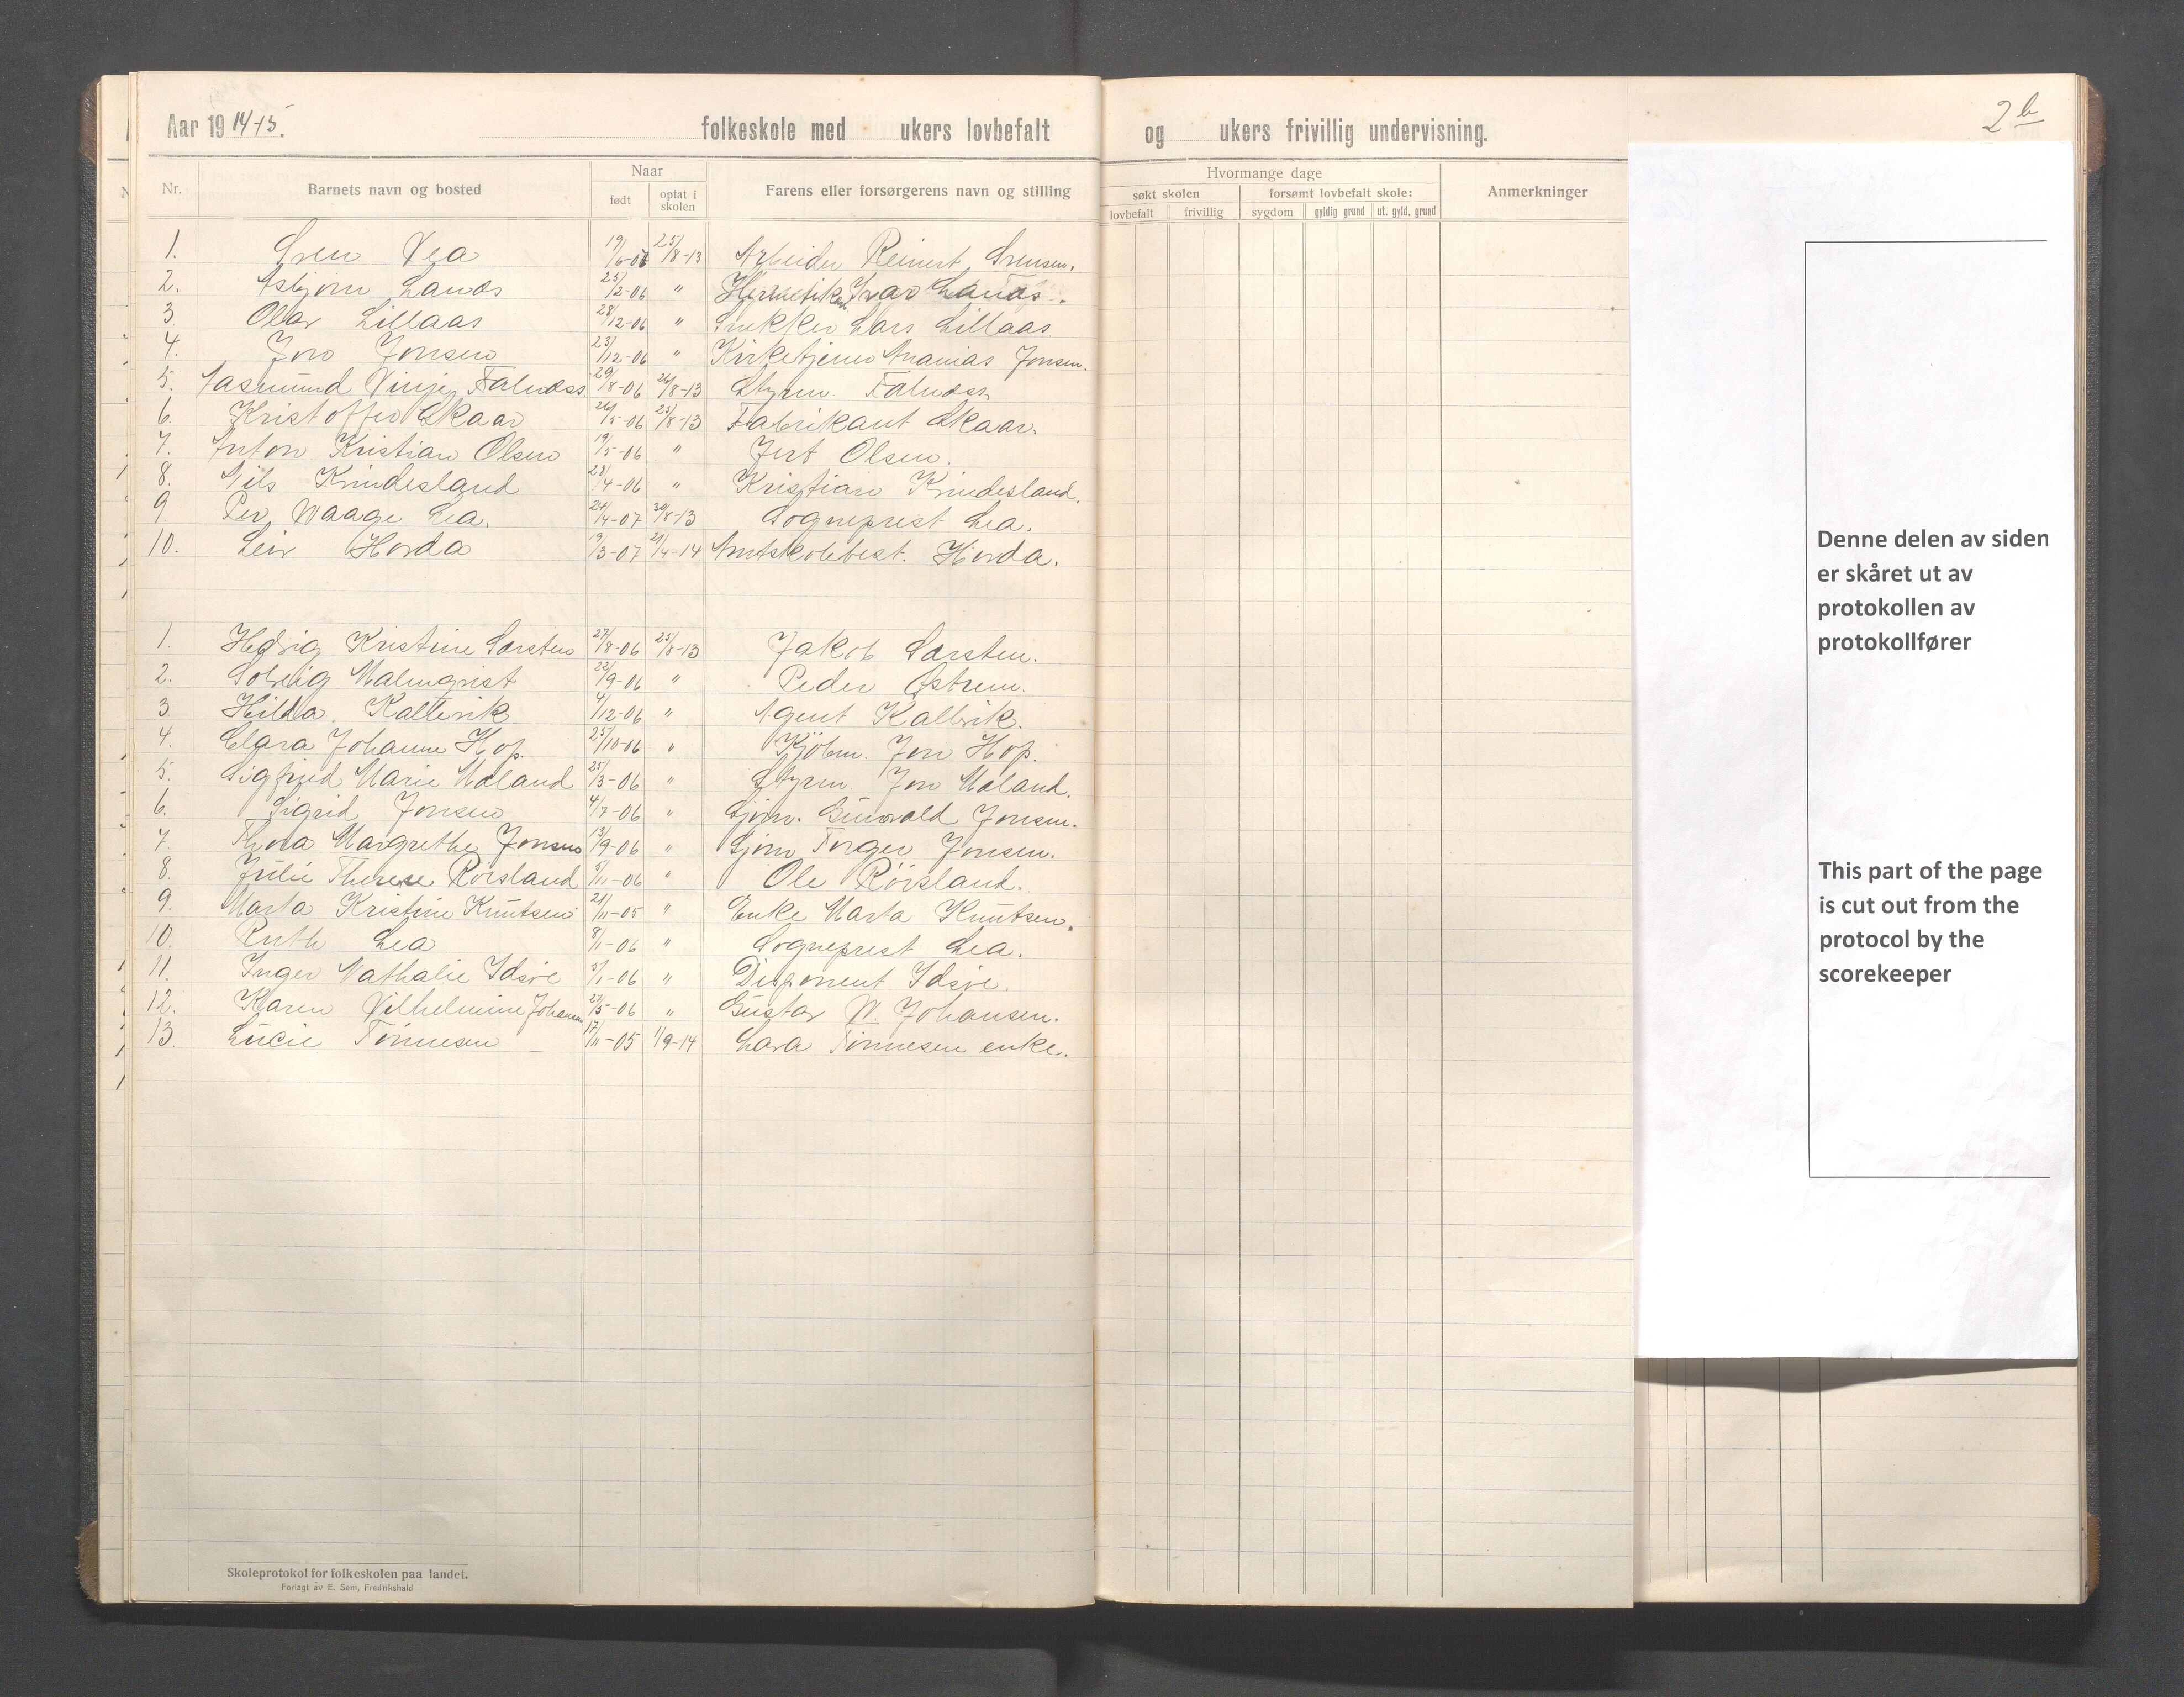 Aar 19 14-15. folkeskole med ukers lovbefalt og ukers frivillig undervisning. 2 b
Nr. Barnets navn og bosted Naar født optat i skolen Farens eller forsørgerens navn og stilling Hvormange dage søkt skolen lovbefalt frivillig forsømt lovbefalt skole: sygdom gyldig grund ut. gyld. grund Anmerkninger
1. Sven Vea 19/6-06 25/8-13 Arbeider Reinert Svensen.
2. Asbjørn Lanes 25/2-06 " Ivar Lanes.
3. Olav Lillaas 28/12-06 " Snekker Lars Lillaas.
4. Jon Jonsen 23/12-06 " Kirketjener Ananias Jonsen.
5. Aasmund Vinje Falnæss 29/8-06 26/8-13 Styrm. Falnæss
6. Kristoffer Skaar 26/5-06 25/8-13 Fabrikant Skaar.
7. Anton Kristian Olsen 19/5-06 " Jert Olsen.
8. Nils Kindesland 28/4-06 " Kristian Kindesland.
9. Per Waage Lea. 24/4-07 30/8-13 Sogneprest Lea.
10. Leiv Horda 19/3-07 21/4-14 Amtskolebest. Horda.
1. Hedvig Kristine Sørsten 27/8-06 25/8-13 Jakob Sørsten.
2. Solveig Malmqvist 22/9-06 " Peder Østrem.
3 Hilda Kallevik 4/12-06 " Agent Kallevik.
4. Clara Johanne Hop. 25/10-06 " Kjöbm. Jon Hop.
5. Sigfrid Marie Moland 25/3-06 " Styrm Jon Moland.
6. Sigrid Jonsen 4/7-06 " Sjøm. Gunvald Jonsen.
7. Thora Margrethe Jonsen 13/9-06 " Sjøm Torger Jonsen.
8. Julie Therese Rövsland 5/11-06 " Ole Rövsland.
9. Marta Kristine Knutsen 21/11-05 " Enke Marta Knutsen.
10. Ruth Lea 8/1-06 " Sogneprest Lea.
11. Inger Nathalie Idsøe 5/1-06 " Disponent Idsøe.
12. Karen Vilhelmine Johansen 27/5-06 " Gustav W. Johansen.
13. Lucie Tönnesen 17/11-05 1/9-14 Lava Tönnesen enke.
Skoleprotokol for folkeskolen paa landet.
Forlagt av E. Sem, Fredrikshald
Denne delen av siden
er skåret ut av
protokollen av
protokollfører
This part of the page
is cut out from the
protocol by the
scorekeeper